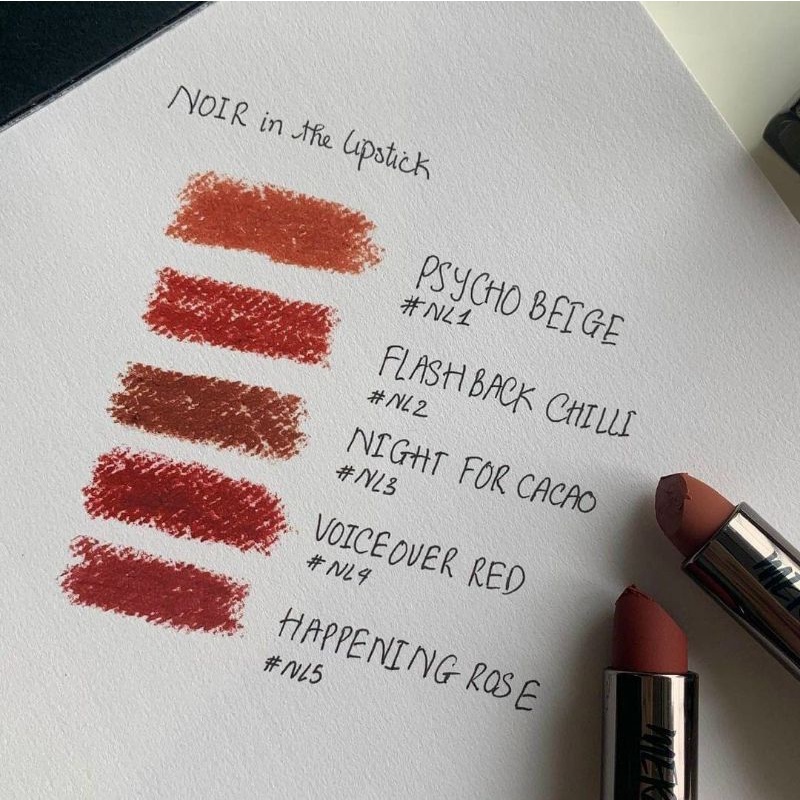 NOIR in the lipstick
PSYCHO BEIGE
#NL1
FLASHBACK CHILLI
#NL2
NIGHT FOR CACAO
#NL3
VOICEOVER RED
#NL4
HAPPENING ROSE
#NL5